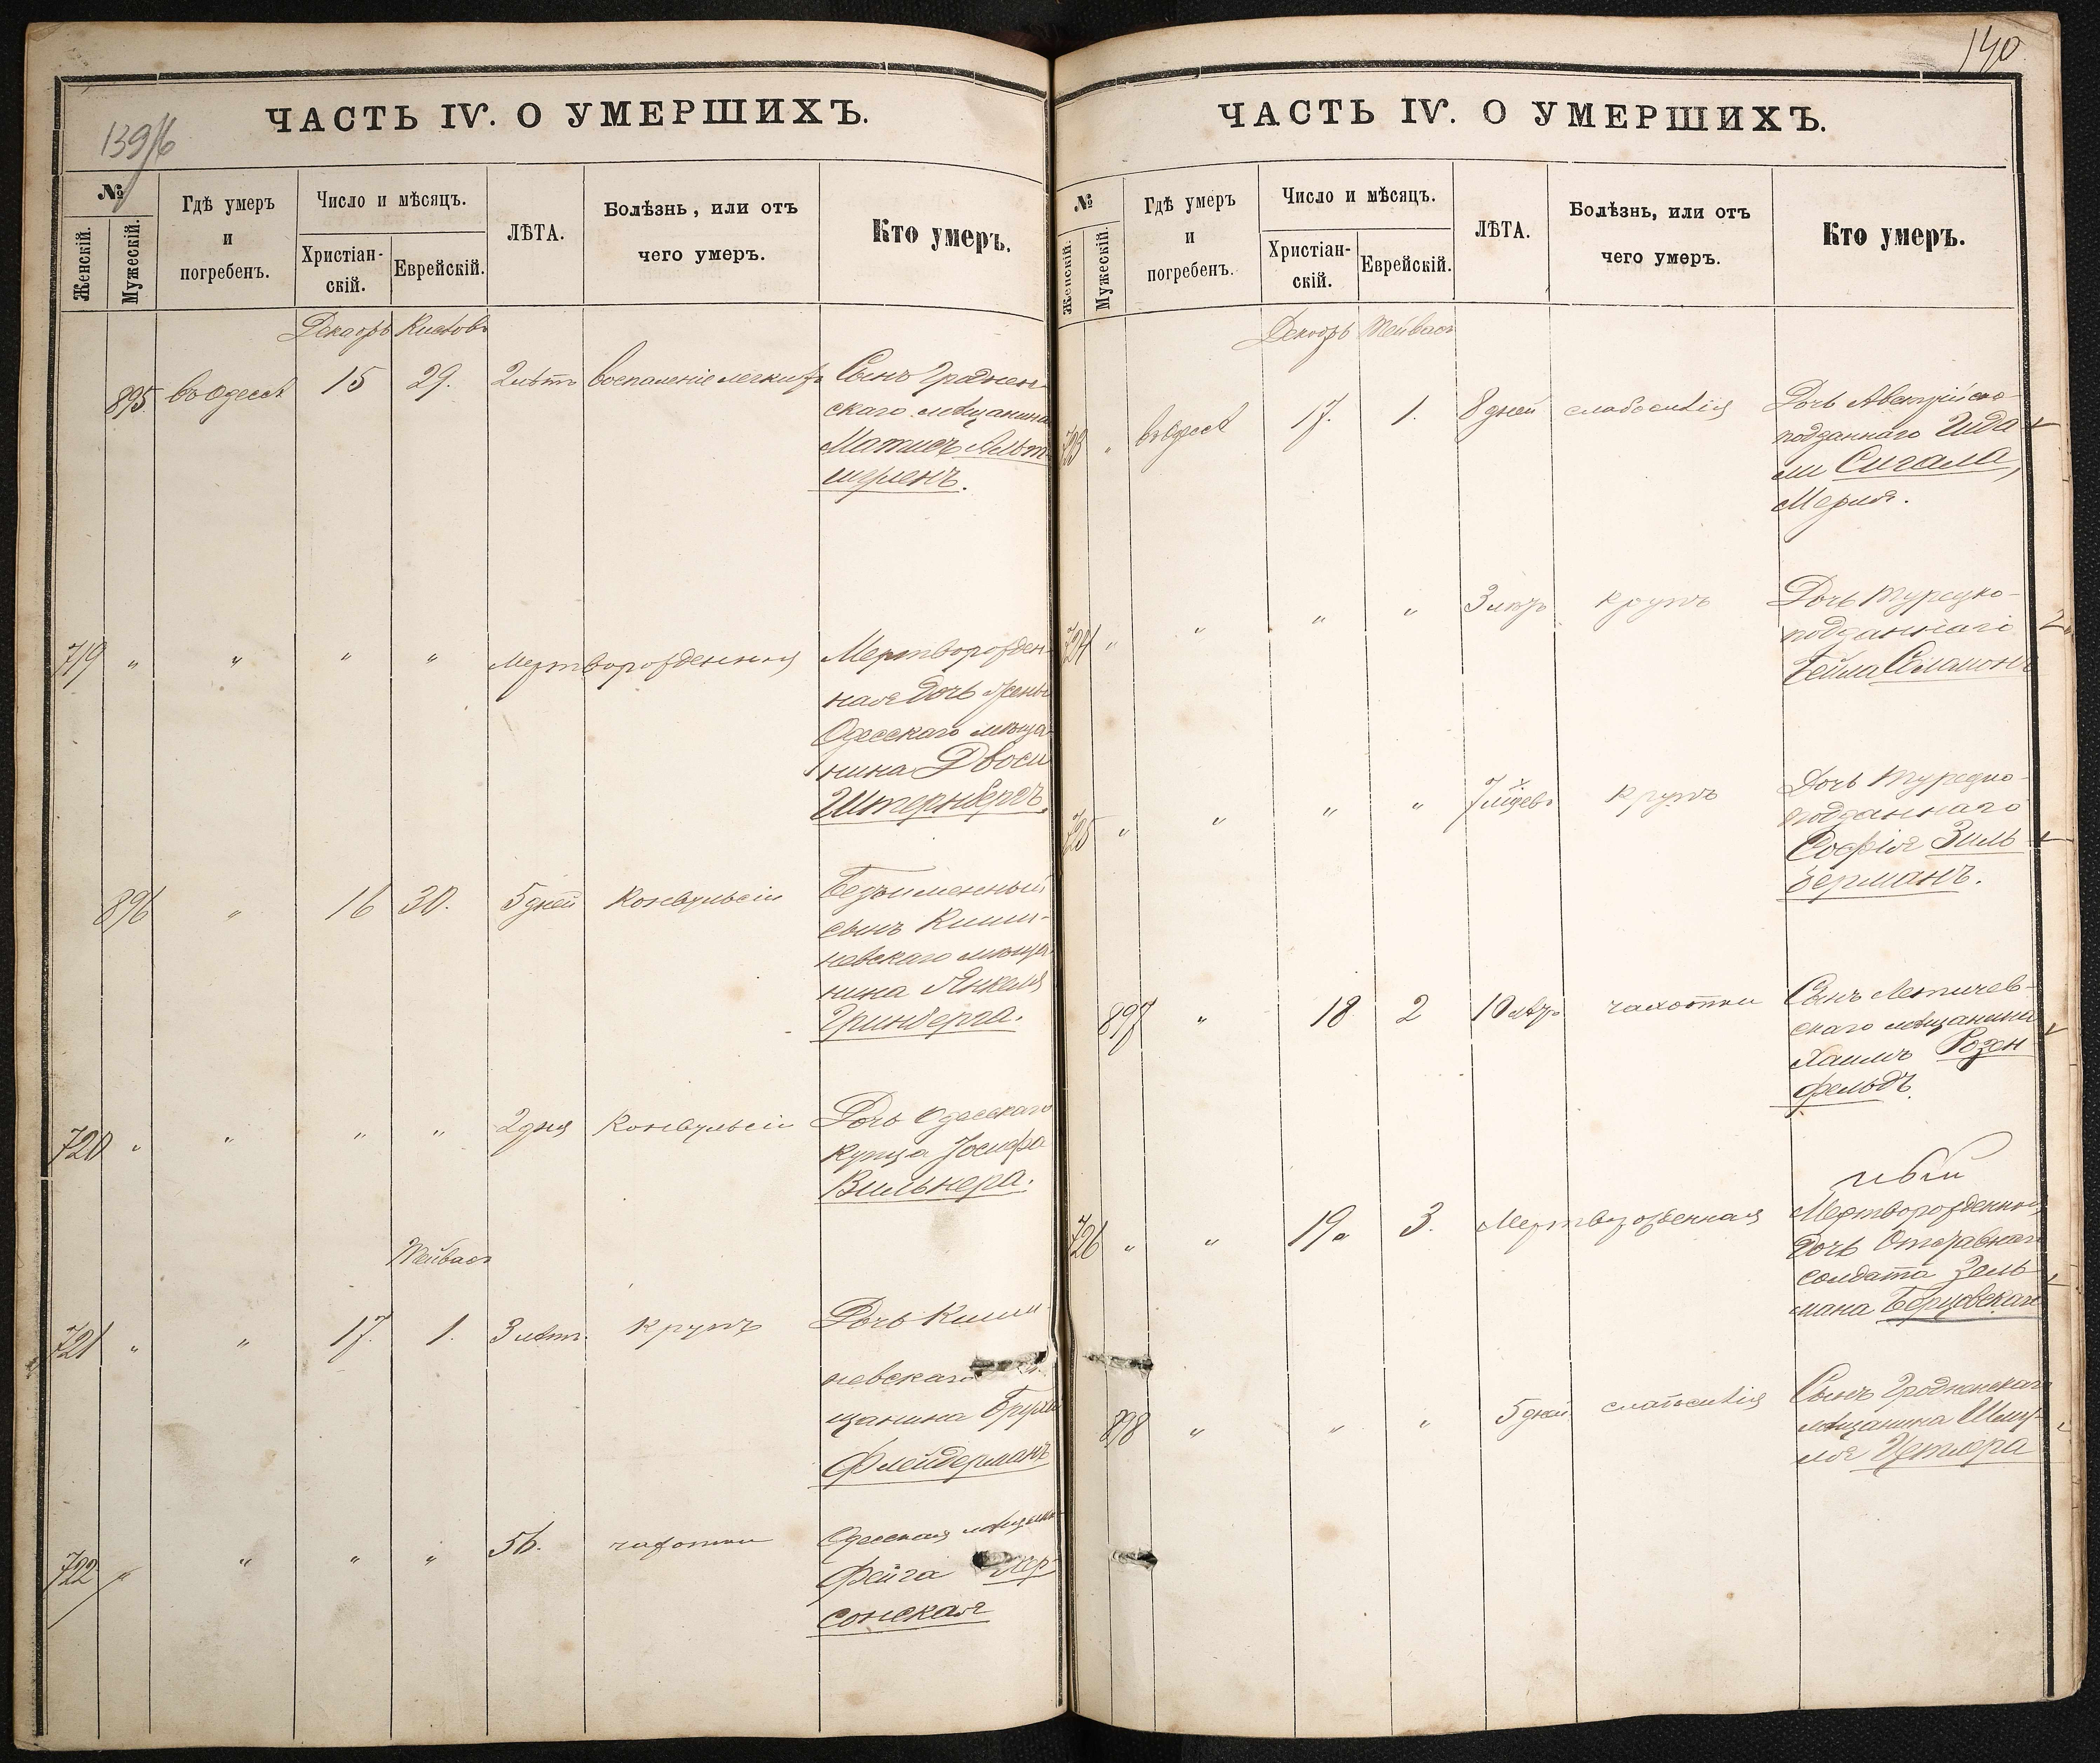 139/б
ЧАСТЬ IV. О УМЕРШИХЪ.
№
Женскій.
Мужескій.
Гдѣ умеръ
и
погребенъ.
Число и мѣсяцъ.
Христіан-
скій.
Еврейскій.
ЛѢТА.
Болѣзнь, или отъ
чего умеръ.
Кто умеръ.
Декабрь Кислевъ
895. въ Одессѣ 15 29. 2 лѣтъ воспаленіе легкихъ Сынъ Гроднен-
скаго мѣщанина
Матисъ Альт-
шулеръ.
719 " " " " Мертворожденная Мертворожден-
ная дочь жены
Одесскаго мѣща-
нина Двоси
Штернбергъ.
896 " 16 30. 5 дней Конвульсіи Безъименный
сынъ Киши-
невскаго мѣща-
нина Янкеля
Гринберга.
720 " " " " 2 дня Конвульсіи Дочь Одесскаго
купца Іосифа
Вильнера.
Тейвасъ
721 " " 17. 1. 3 лѣт. крупъ Дочь Киши-
невскаго
щанина Брухи
Флейдерманъ
722 " " " " 56. чахотки Одесская мѣщанка
Фейга Хер-
сонская
140
ЧАСТЬ IV. О УМЕРШИХЪ.
№
Женскій.
Мужескій.
Гдѣ умеръ
и
погребенъ.
Число и мѣсяцъ.
Христіан-
скій.
Еврейскій.
ЛѢТА.
Болѣзнь, или отъ
чего умеръ.
Кто умеръ.
Декабрь Тейвасъ
723 " въ Одессѣ 17. 1. 8 дней слабосилія Дочь Австрійско-
подданнаго Гида-
ли Сигала,
Мерия.
724 " " " " 3 лѣтъ крупъ Дочь Турецко-
подданнаго
Бейла Саламонъ
725 " " " " 7 мѣсяцевъ Крупъ Дочь Турецко-
подданнаго
Софія Зиль-
берманъ.
897 " 18 2 10 лѣтъ чахотки Сынъ Летичев-
скаго мѣщанина
Хаимъ Розен-
фельдъ.
ный
726 " " 19. 3. Мертворожденная Мертворожденный
дочь Отставнаго
солдата Зель-
мана
898 " " " 5 дней слабосилія Сынъ Гродненскаго
мѣщанина Шму-
ля Цетлера